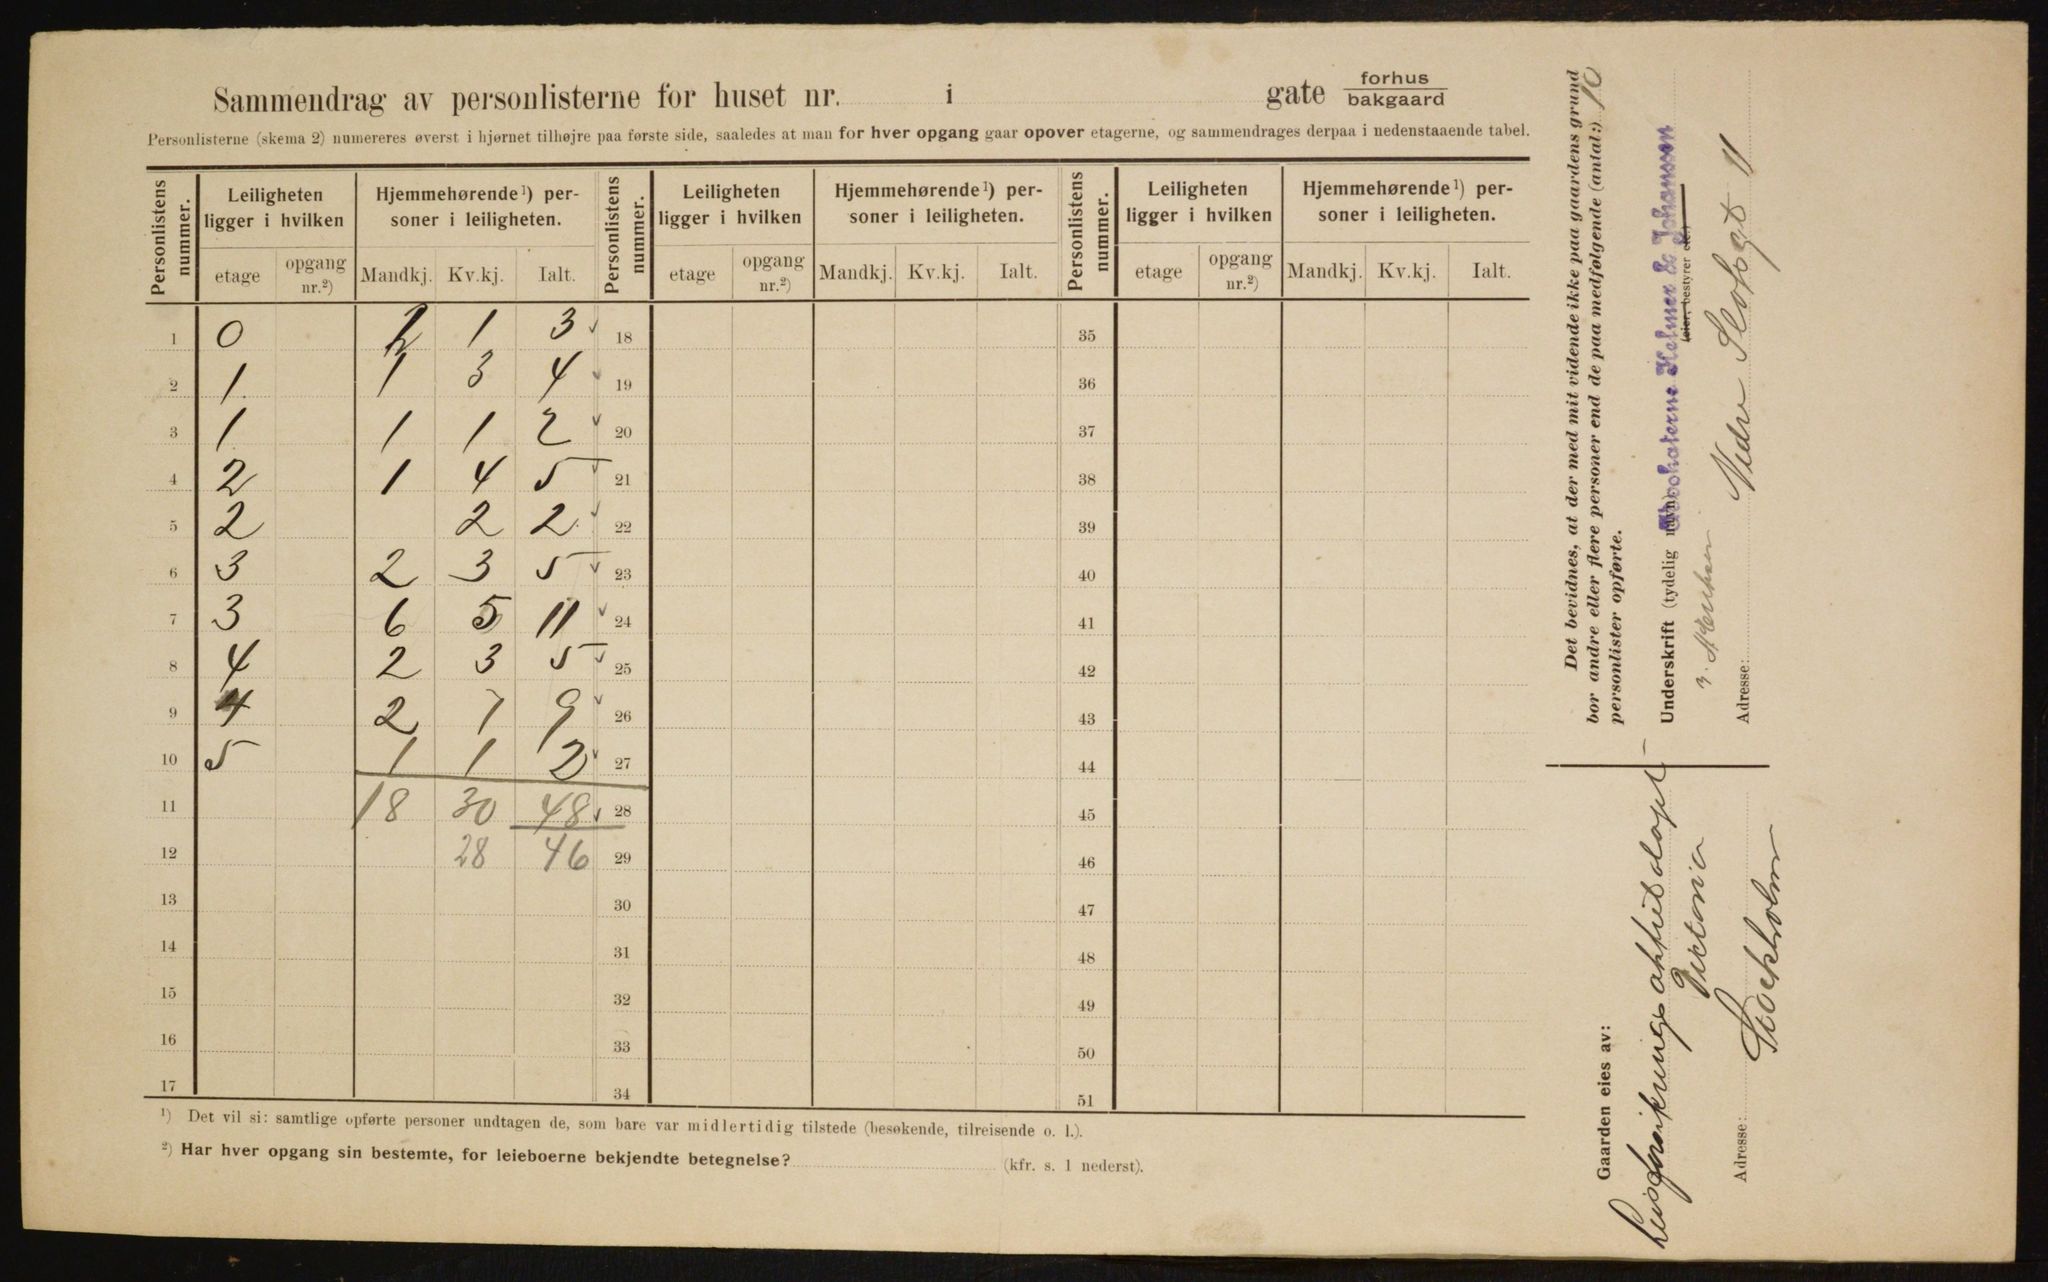 Sammendrag av personlisterne for huset nr. i gate forhus bakgaard
Personlisterne (skema 2) numereres øverst i hjørnet tilhøjre paa første side, saaledes at man for hver opgang gaar opover etagerne, og sammendrages derpaa i nedenstaaende tabel.
Personlistens nummer. Leiligheten ligger i hvilken Hjemmehørende¹) personer i leiligheten. Personlistens nummer. Leiligheten ligger i hvilken Hjemmehørende¹) personer i leiligheten. Personlistens nummer. Leiligheten ligger i hvilken Hjemmehørende¹) personer i leiligheten.
etage opgang nr.²) Mandkj. Kv.kj. Ialt. etage opgang nr.²) Mandkj. Kv.kj. Ialt. etage opgang nr.²) Mandkj. Kv.kj. Ialt.
1 0 2 1 3 18 35
2 1 1 3 4 19 36
3 1 1 1 2 20 37
4 2 1 4 5 21 38
5 2 2 2 22 39
6 3 2 3 5 23 40
7 3 6 5 11 24 41
8 4 2 3 5 25 42
9 4 2 7 9 26 43
10 5 1 1 2 27 44
11 18 30 48 28 45
12 28 46 29 46
13 30 47
14 31 48
15 32 49
16 33 50
17 34 51
¹) Det vil si: samtlige opførte personer undtagen de, som bare var midlertidig tilstede (besøkende, tilreisende o. l.).
²) Har hver opgang sin bestemte, for leieboerne bekjendte betegnelse? (kfr. s. 1 nederst).
Det bevidnes, at der med mit vidende ikke paa gaardens grund
bor andre eller flere personer end de paa medfølgende (antal:) 10
personlister opførte.
Underskrift (tydelig navn) Advokaterne Helmer & Johanssen
(eier, bestyrer etc.)
Adresse: Nedre Slotsgt 11
Gaarden eies av:
Livsforsikringsaktieselskapet
Victoria
Adresse: Stockholm